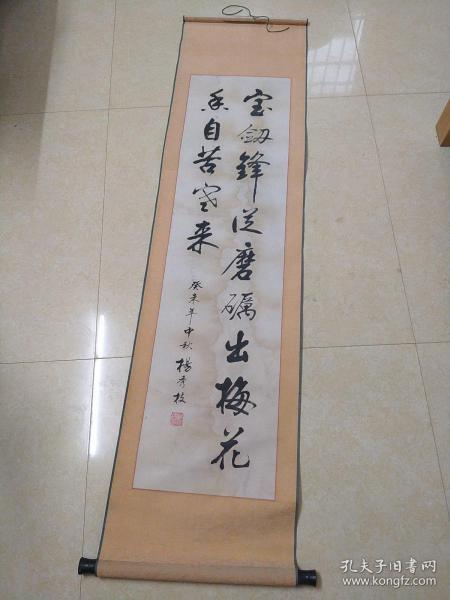 宝剑锋从磨砺出梅花
香自苦寒来
癸未年中秋 杨秀枝
孔夫子旧书网
www.kongfz.com